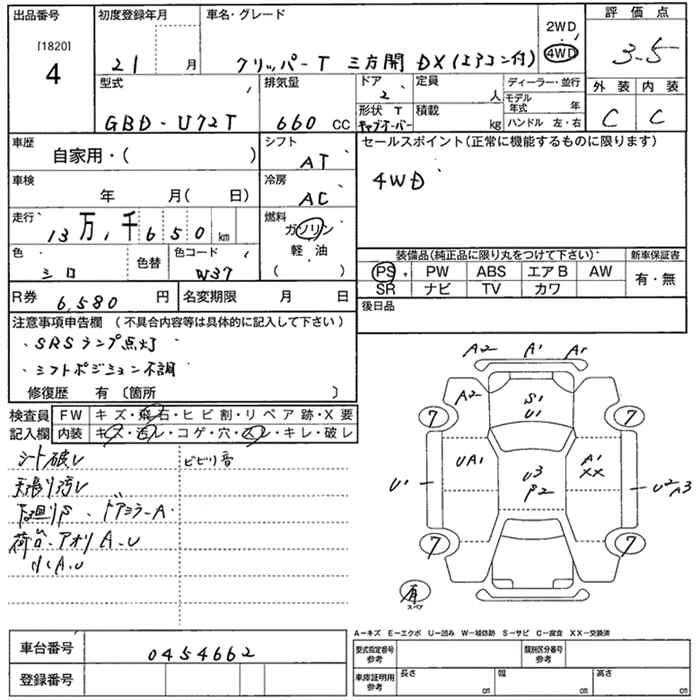 出品番号 初度登録年月 車名・グレード 2WD 評価点
[1820] 4WD 3.5
4 21 月 クリッパーT 三方開 DX(エアコン付)
型式 排気量 ドア 2 定員 人 ディーラー・並行 外装 内装
モデル年式 年
GBD-U72T 660 CC 形状 T キャブオーバー 積載 kg ハンドル 左・右 C C
車歴 自家用・( ) シフト AT セールスポイント(正常に機能するものに限ります)
車検 年 月( 日) 冷房 AC 4WD
走行 13万1千650km 燃料 ガソリン
軽油
( )
色 シロ 色替 色コード W37 装備品(純正品に限り丸をつけて下さい) 新車保証書
PS PW ABS エアB AW 有・無
SR ナビ TV カワ
R券 6,580円 名変期限 月 日 後日品
注意事項申告欄(不具合内容等は具体的に記入して下さい)
・SRSランプ点灯
・シフトポジション不調
修復歴 有〔箇所 〕
検査員 FW キズ・飛石・ヒビ割・リペア跡・X要
記入欄 内装 キズ・汚レ・コゲ・穴・スレ・キレ・破レ
シート破レ ビビリ音
天張り汚レ
下廻りS、ドアミラーA
荷台・アオリA・U
小A.U
A2 A1 A1
A2 S1
U1
7 7
UA1 U3
P2 A1
XX
U1 U2 A3
7 7
有
スペア
A-キズ E-エクボ U-凹み W-補修跡 S-サビ C-腐食 XX-交換済
車台番号 0454662 型式指定番号 参考 類別区分番号 参考
登録番号 車庫証明用 参考 長さ cm 幅 cm 高さ cm